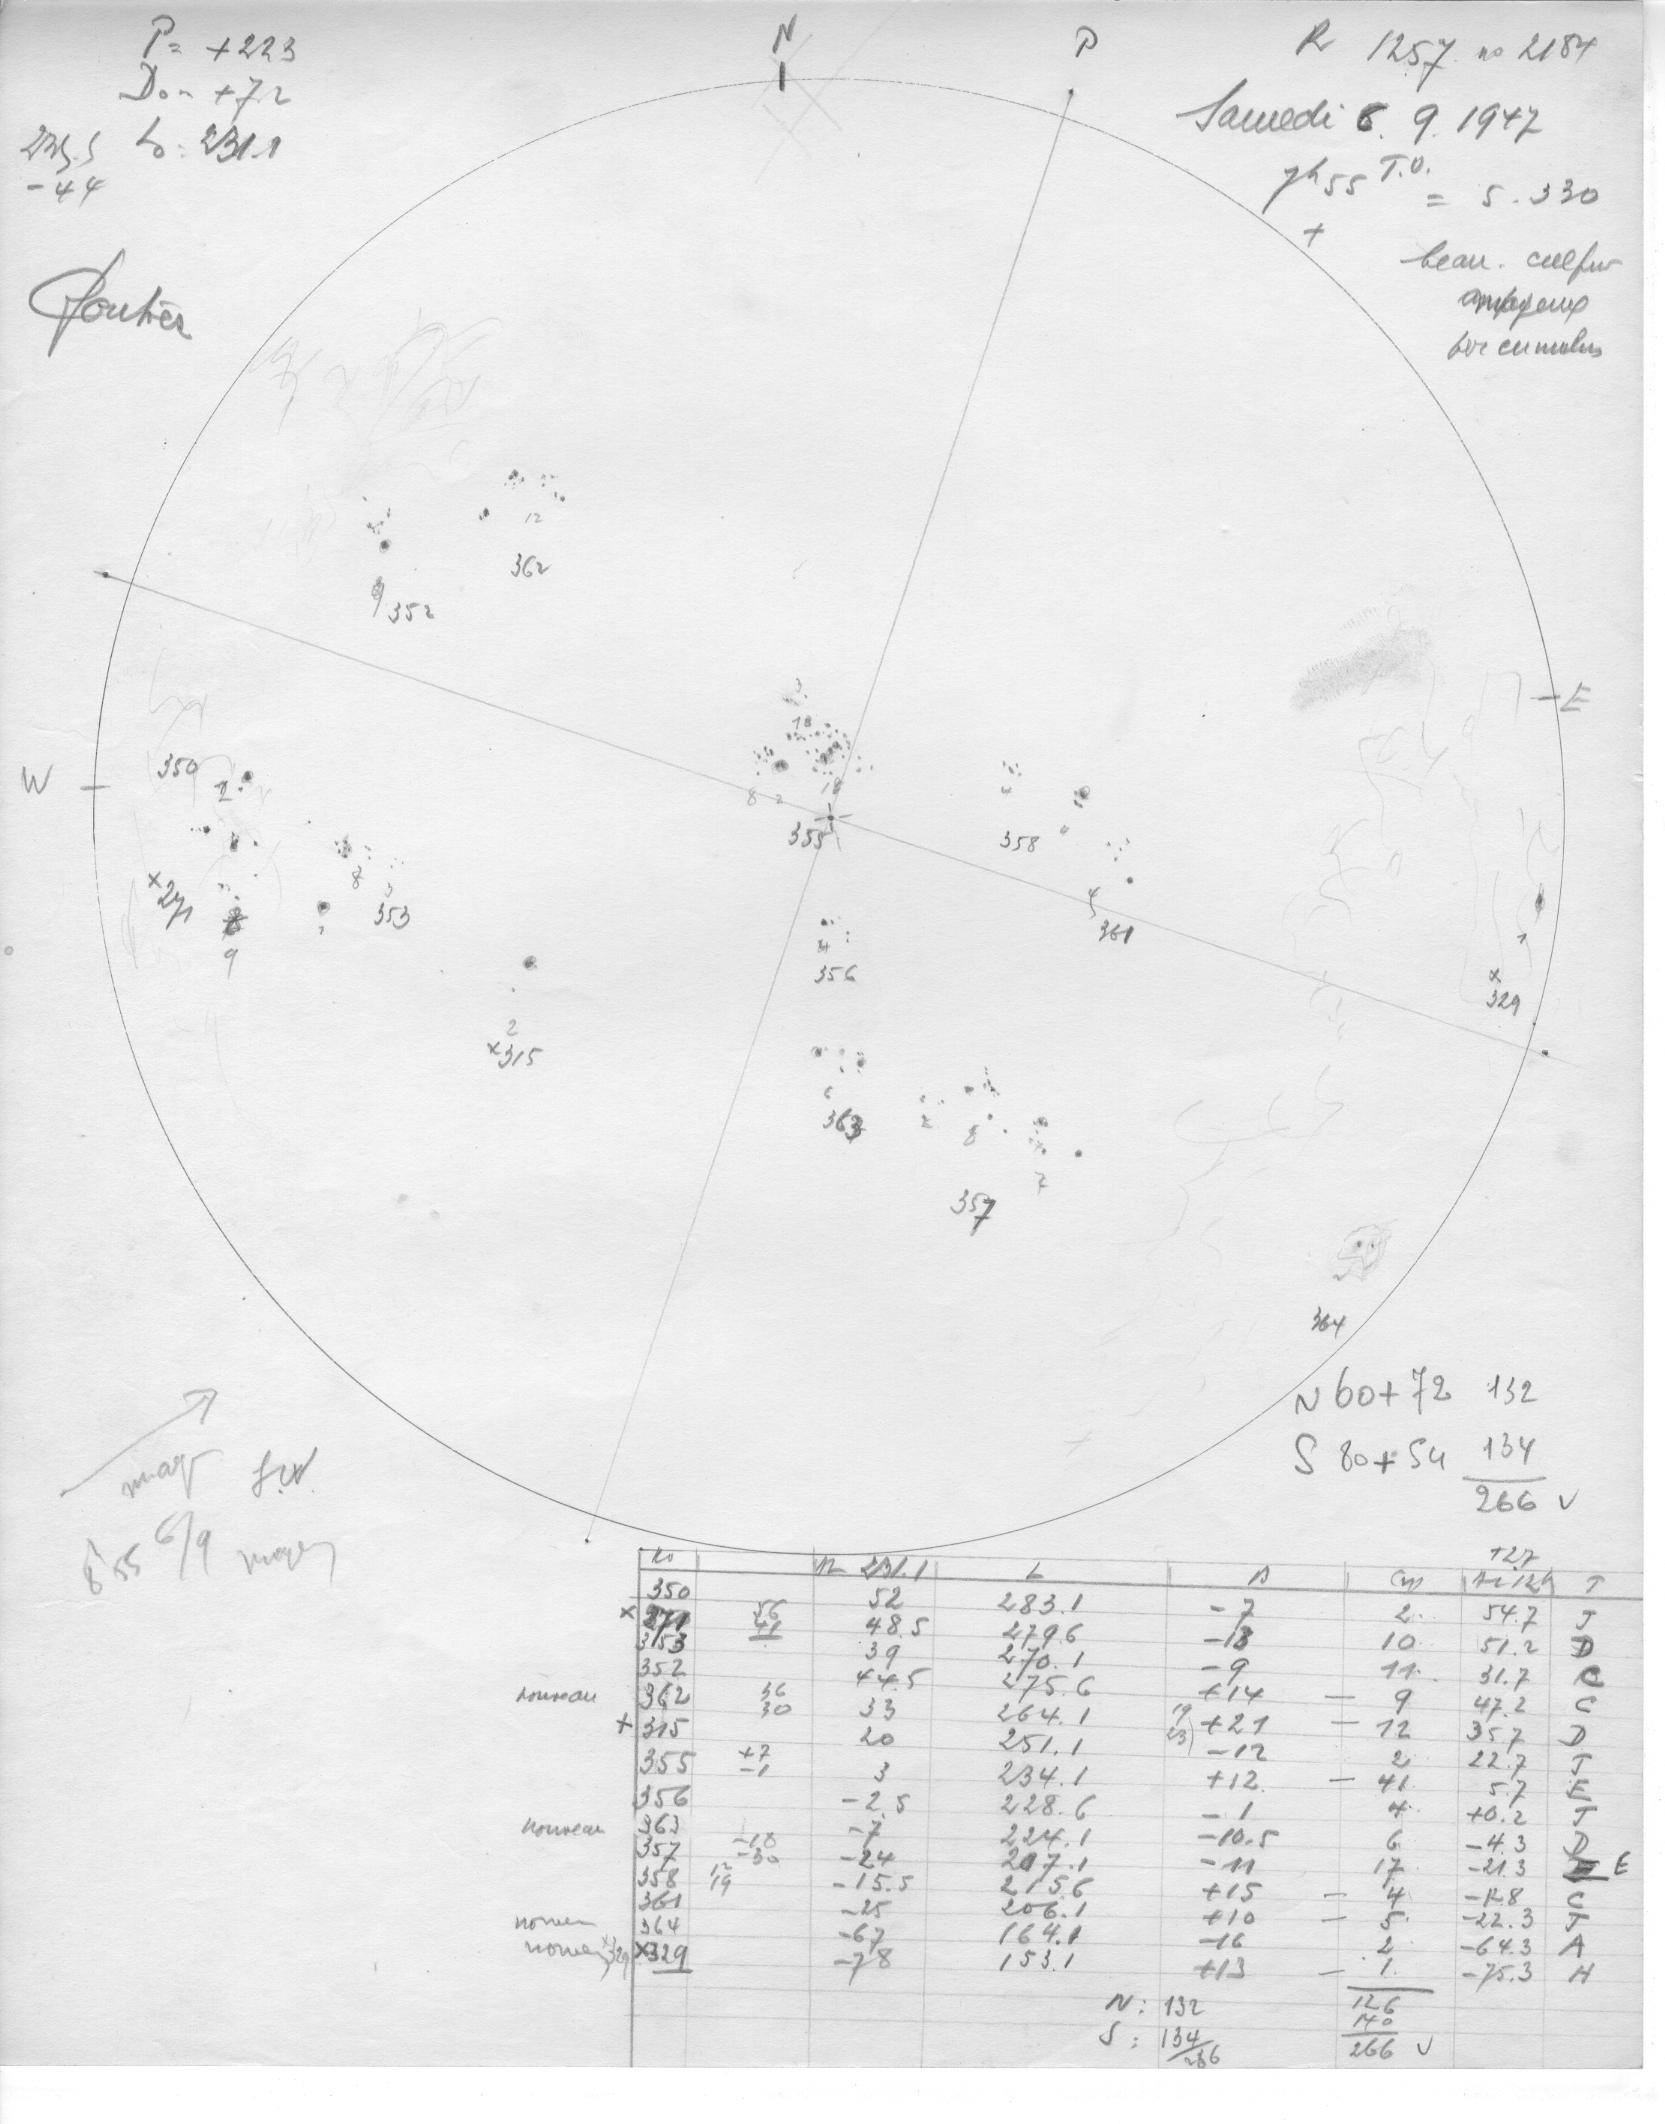 P= +223
Do= +72
Lo: 231.1
-44
N
P
R 1257 no 2184
Samedi 6. 9. 1947
7h55 T.U.
= 5.330
+
beau. 
cumulus
12
362
9 352
3
18
E
350
2
W
8 2 18
355
358
4
8
3
353
x 271
8
9
1
4
361
4
356
1
x
329
2
x315
6
363
2
8
7
357
364
N 60+72 132
S 80+54 134
266 v
S.W.
8h55 6/9
No R 231.1 L B 127
T
350 52 283.1 -7 2 54.7 J
x 271 56 41 48.5 279.6 -13 10 51.2 D
353 39 270.1 -9 11 31.7 C
352 44.5 275.6 +14 - 9 47.2 C
nouveau 362 36 30 33 264.1 19 23 +21 - 12 35.7 D
+ 315 20 251.1 -12 2 22.7 J
355 +7 -1 3 234.1 +12 - 41 5.7 E
356 -2.5 228.6 -1 4 +0.2 J
nouveau 363 -7 224.1 -10.5 6 -4.3 D
357 -18 -30 -24 207.1 -11 17 -21.3 E
358 12 19 -15.5 215.6 +15 - 4 -12.8 C
361 -25 206.1 +10 - 5 -22.3 J
364 -67 164.1 -16 2 -64.3 A
x329 -78 153.1 +13 - 1 -75.3 H
N: 132 126
S: 134 140
266 266 v